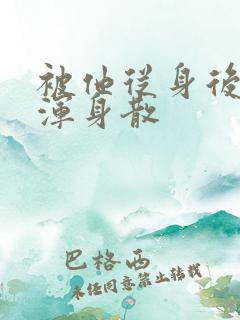 被他從身後
渾身散
巴格西
未经同意禁止转载